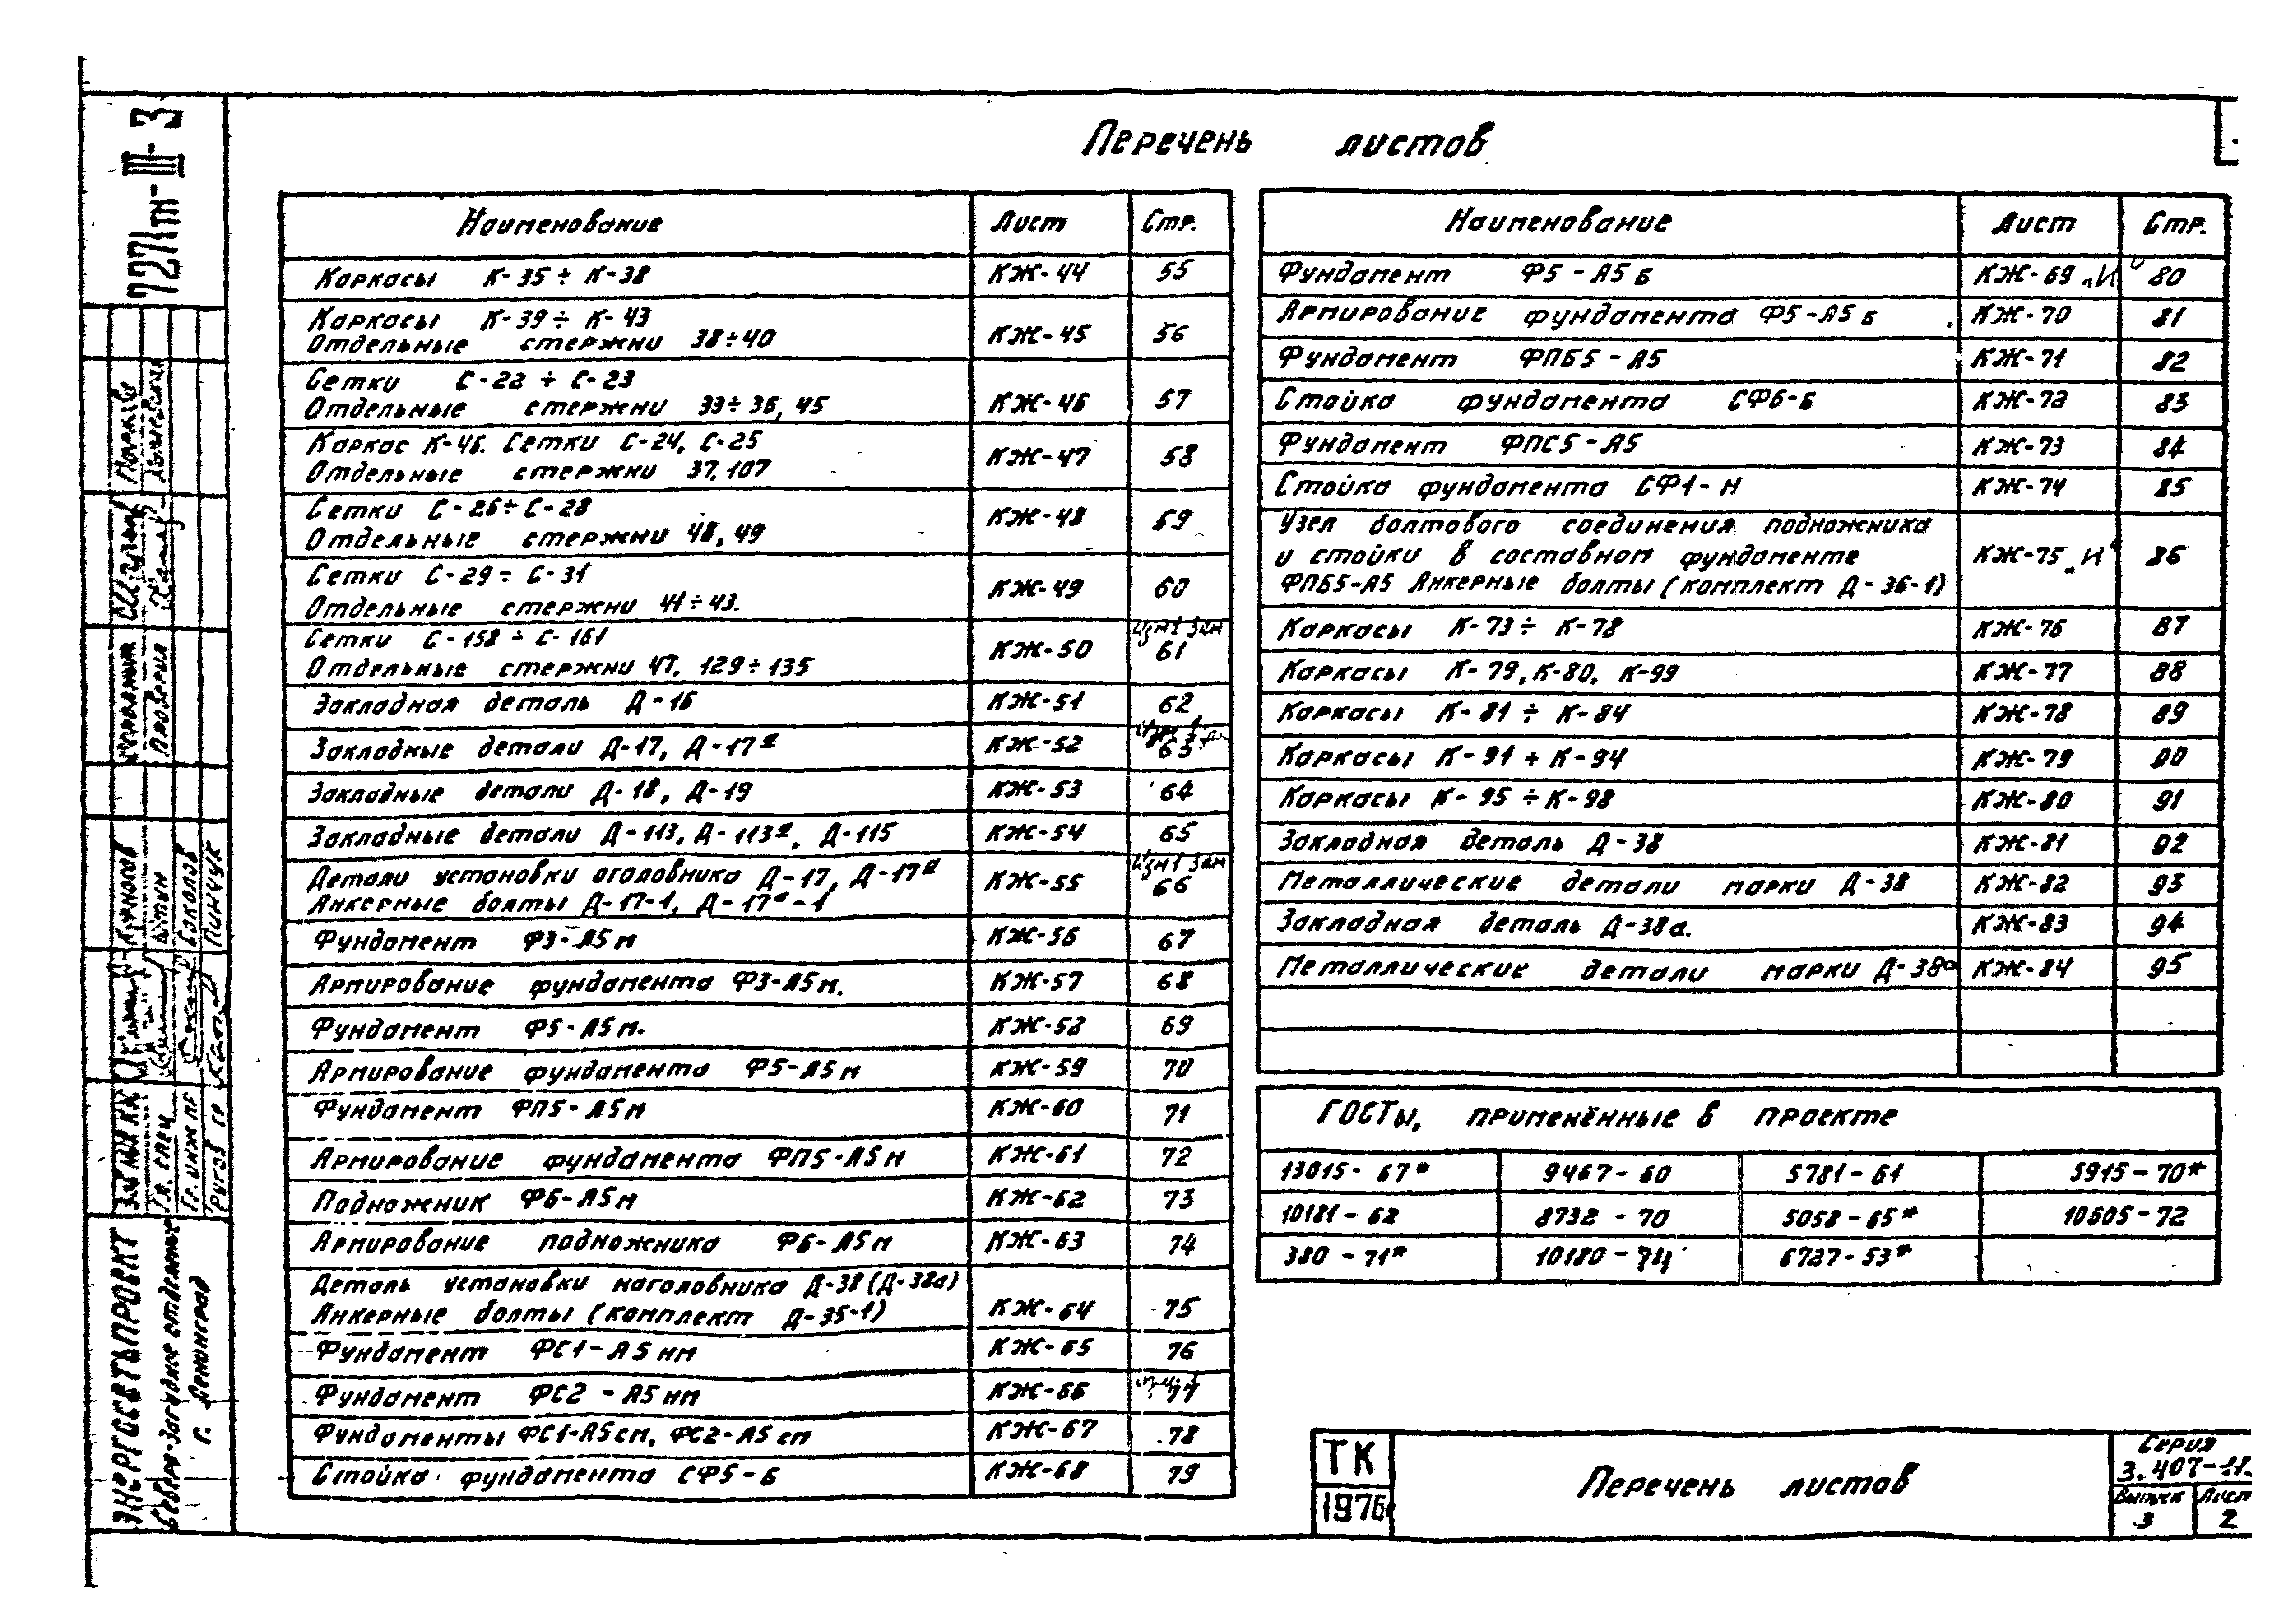 Перечень листов
Наименование Лист Стр.
Каркасы К-35 ÷ К-38 КЖ-44 55
Каркасы К-39 ÷ К-43
Отдельные стержни 38÷40 КЖ-45 56
Сетки С-22 ÷ С-23
Отдельные стержни 33÷36, 45 КЖ-46 57
Каркас К-46. Сетки С-24, С-25
Отдельные стержни 37, 107 КЖ-47 58
Сетки С-26÷С-28
Отдельные стержни 48, 49 КЖ-48 59
Сетки С-29 ÷ С-31
Отдельные стержни 41÷43. КЖ-49 60
Сетки С-158 ÷ С-161
Отдельные стержни 47, 129÷135 КЖ-50 Изм1 Зам 61
Закладная деталь Д-16 КЖ-51 62
Закладные детали Д-17, Д-17а КЖ-52 63
Закладные детали Д-18, Д-19 КЖ-53 64
Закладные детали Д-113, Д-113а, Д-115 КЖ-54 65
Детали установки оголовника Д-17, Д-17а
Анкерные болты Д-17-1, Д-17а-1 КЖ-55 Изм1 Зам 66
Фундамент Ф3-А5м КЖ-56 67
Армирование фундамента Ф3-А5м. КЖ-57 68
Фундамент Ф5-А5м. КЖ-58 69
Армирование фундамента Ф5-А5м КЖ-59 70
Фундамент ФП5-А5м КЖ-60 71
Армирование фундамента ФП5-А5м КЖ-61 72
Подножник Ф6-А5м КЖ-62 73
Армирование подножника Ф6-А5м КЖ-63 74
Деталь установки наголовника Д-38 (Д-38а)
Анкерные болты (комплект Д-35-1) КЖ-64 75
Фундамент ФС1-А5нм КЖ-65 76
Фундамент ФС2-А5нм КЖ-66 77
Фундаменты ФС1-А5см, ФС2-А5см КЖ-67 78
Стойка фундамента СФ5-Б КЖ-68 79
Наименование Лист Стр.
Фундамент Ф5-А5Б КЖ-69 „И“ 80
Армирование фундамента Ф5-А5Б КЖ-70 81
Фундамент ФПБ5-А5 КЖ-71 82
Стойка фундамента СФ6-Б КЖ-72 83
Фундамент ФПС5-А5 КЖ-73 84
Стойка фундамента СФ1-Н КЖ-74 85
Узел болтового соединения подножника
и стойки в составном фундаменте
ФПБ5-А5 Анкерные болты (комплект Д-36-1) КЖ-75 „И“ 86
Каркасы К-73 ÷ К-78 КЖ-76 87
Каркасы К-79, К-80, К-99 КЖ-77 88
Каркасы К-81 ÷ К-84 КЖ-78 89
Каркасы К-91 ÷ К-94 КЖ-79 90
Каркасы К-95 ÷ К-98 КЖ-80 91
Закладная деталь Д-38 КЖ-81 92
Металлические детали марки Д-38 КЖ-82 93
Закладная деталь Д-38а. КЖ-83 94
Металлические детали марки Д-38а КЖ-84 95
ГОСТы, применённые в проекте
13015-67* 9467-60 5781-61 5915-70*
10181-62 8732-70 5058-65* 10605-72
380-71* 10180-74 6727-53*
ТК
1976
Перечень листов
Серия
3.407-
Выпуск Лист
3 2
7271тм-III-3
Проверил
Соколов
Пинчук
ЭНЕРГОСЕТЬПРОЕКТ
Северо-Западное отделение
г. Ленинград